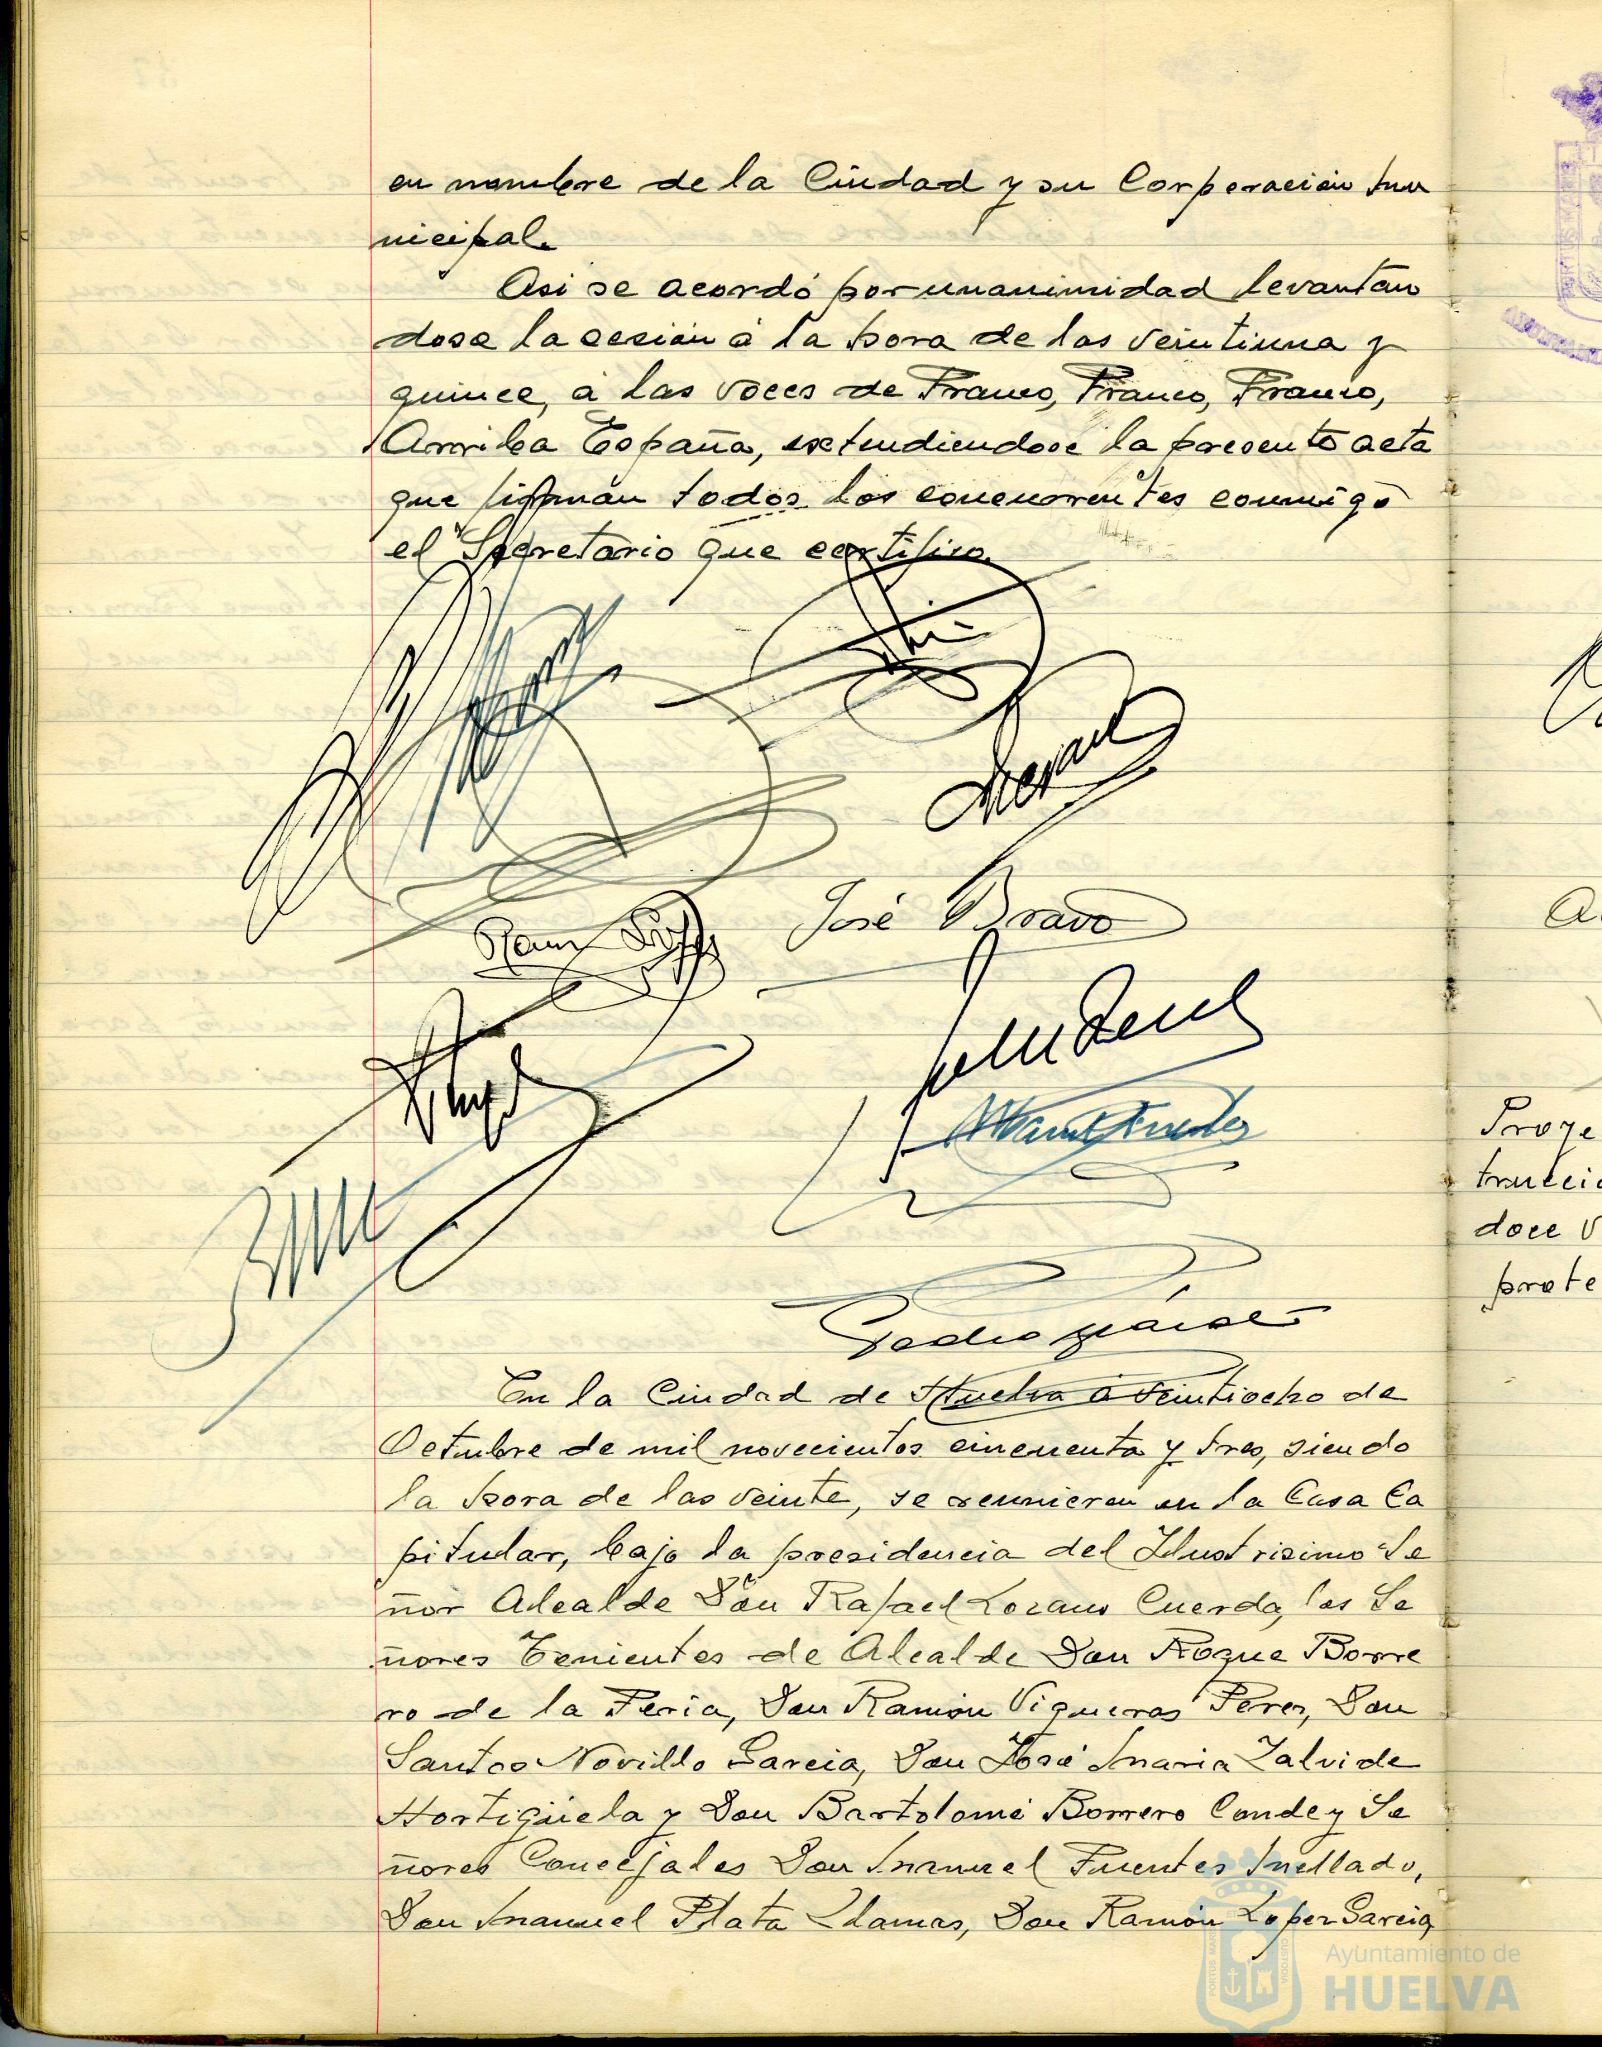 en nombre de la Ciudad y su Corporación Mu
nicipal.
Asi se acordó por unanimidad levantan
dose la sesión á la hora de las veintiuna y
quince, á las voces de Franco, Franco, Franco,
Arriba España, extendiendose la presente acta
que firman todos los concurrentes conmigo
el Secretario que certifico.
José Bravo
En la Ciudad de Huelva á veintiocho de
Octubre de mil novecientos cincuenta y tres, siendo
la hora de las veinte, se reunieron en la Casa Ca
pitular, bajo la presidencia del Ilustrisimo Se
ñor Alcalde Don Rafael Lozano Cuerda, los Se
ñores Tenientes de Alcalde Don Roque Borre
ro de la Feria, Don Ramón Vigueras Perez, Don
Santos Novillo Garcia, Don José Maria Zalvide
Hortigüela y Don Bartolomé Borrero Conde y Se
ñores Concejales Don Manuel Fuentes Mellado,
Don Manuel Plata Llamas, Don Ramón Lopez Garcia,
Proye
trucci
doce v
prote
Ayuntamiento de
HUELVA